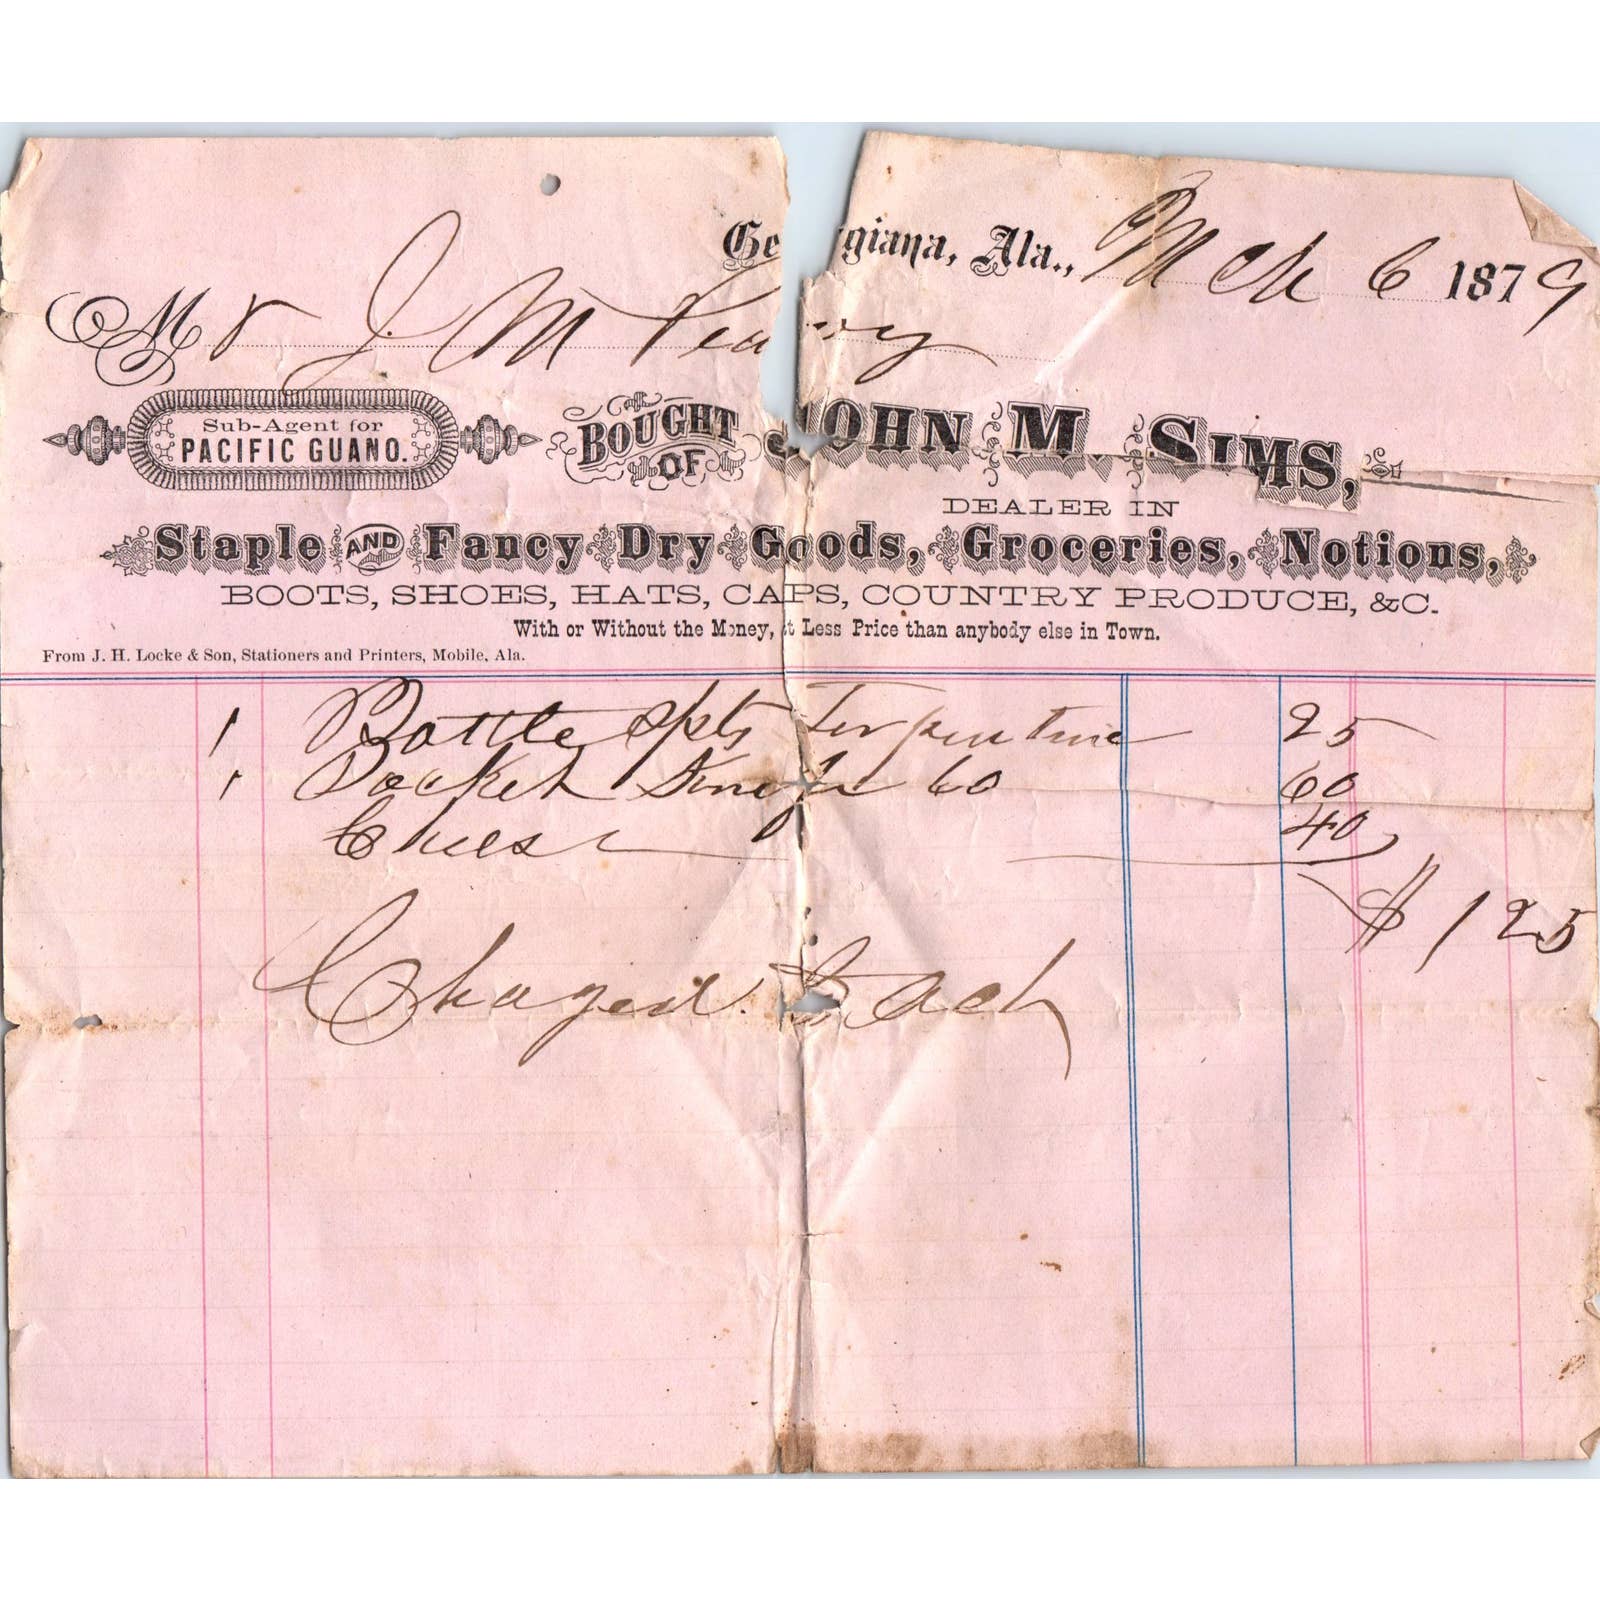 Georgiana, Ala., Mch 6 1879
Mr J. M
Sub-Agent for
PACIFIC GUANO.
BOUGHT OF JOHN M. SIMS,
DEALER IN
Staple AND Fancy Dry Goods, Groceries, Notions,
BOOTS, SHOES, HATS, CAPS, COUNTRY PRODUCE, &C.
With or Without the Money, at Less Price than anybody else in Town.
From J. H. Locke & Son, Stationers and Printers, Mobile, Ala.
1 Bottle Spts Turpentine 25
1 Pocket Knife 60 60
Chees 40
$ 1 25
Chaged